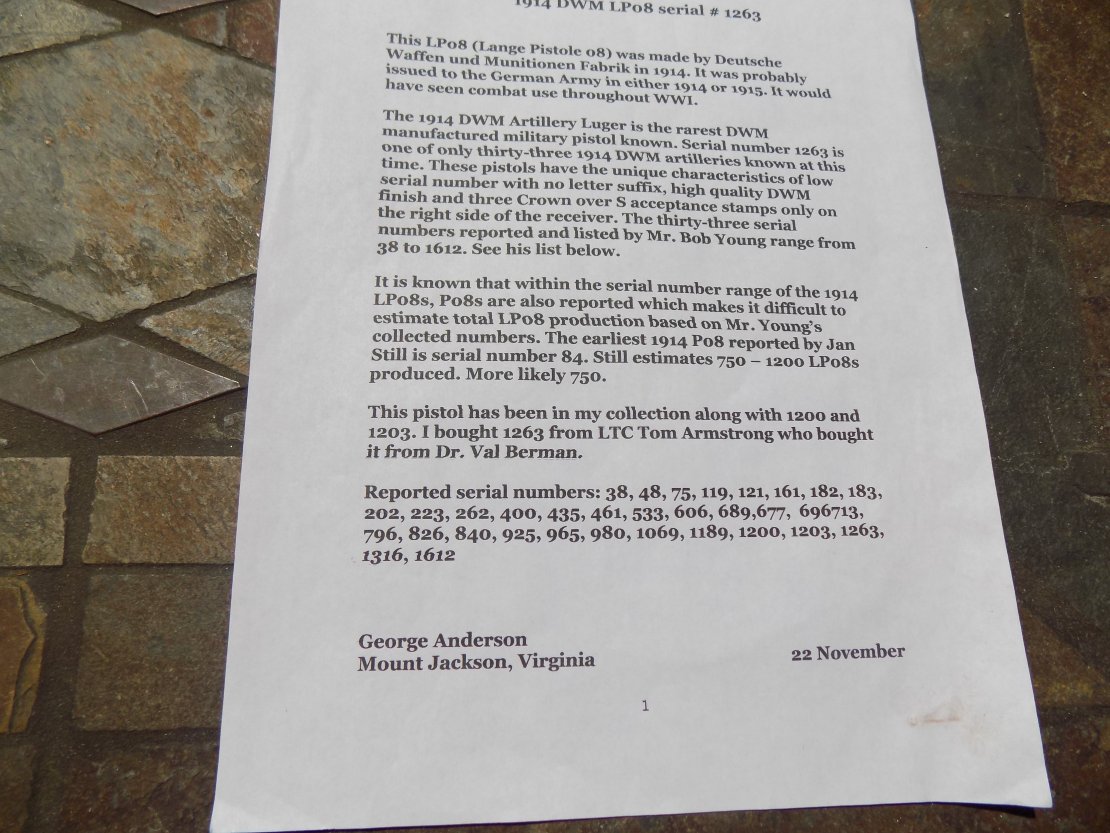 1914 DWM LP08 serial # 1263
This LP08 (Lange Pistole 08) was made by Deutsche
Waffen und Munitionen Fabrik in 1914. It was probably
issued to the German Army in either 1914 or 1915. It would
have seen combat use throughout WWI.
The 1914 DWM Artillery Luger is the rarest DWM
manufactured military pistol known. Serial number 1263 is
one of only thirty-three 1914 DWM artilleries known at this
time. These pistols have the unique characteristics of low
serial number with no letter suffix, high quality DWM
finish and three Crown over S acceptance stamps only on
the right side of the receiver. The thirty-three serial
numbers reported and listed by Mr. Bob Young range from
38 to 1612. See his list below.
It is known that within the serial number range of the 1914
LP08s, P08s are also reported which makes it difficult to
estimate total LP08 production based on Mr. Young's
collected numbers. The earliest 1914 P08 reported by Jan
Still is serial number 84. Still estimates 750 – 1200 LP08s
produced. More likely 750.
This pistol has been in my collection along with 1200 and
1203. I bought 1263 from LTC Tom Armstrong who bought
it from Dr. Val Berman.
Reported serial numbers: 38, 48, 75, 119, 121, 161, 182, 183,
202, 223, 262, 400, 435, 461, 533, 606, 689,677, 696713,
796, 826, 840, 925, 965, 980, 1069, 1189, 1200, 1203, 1263,
1316, 1612
George Anderson
Mount Jackson, Virginia
22 November
1